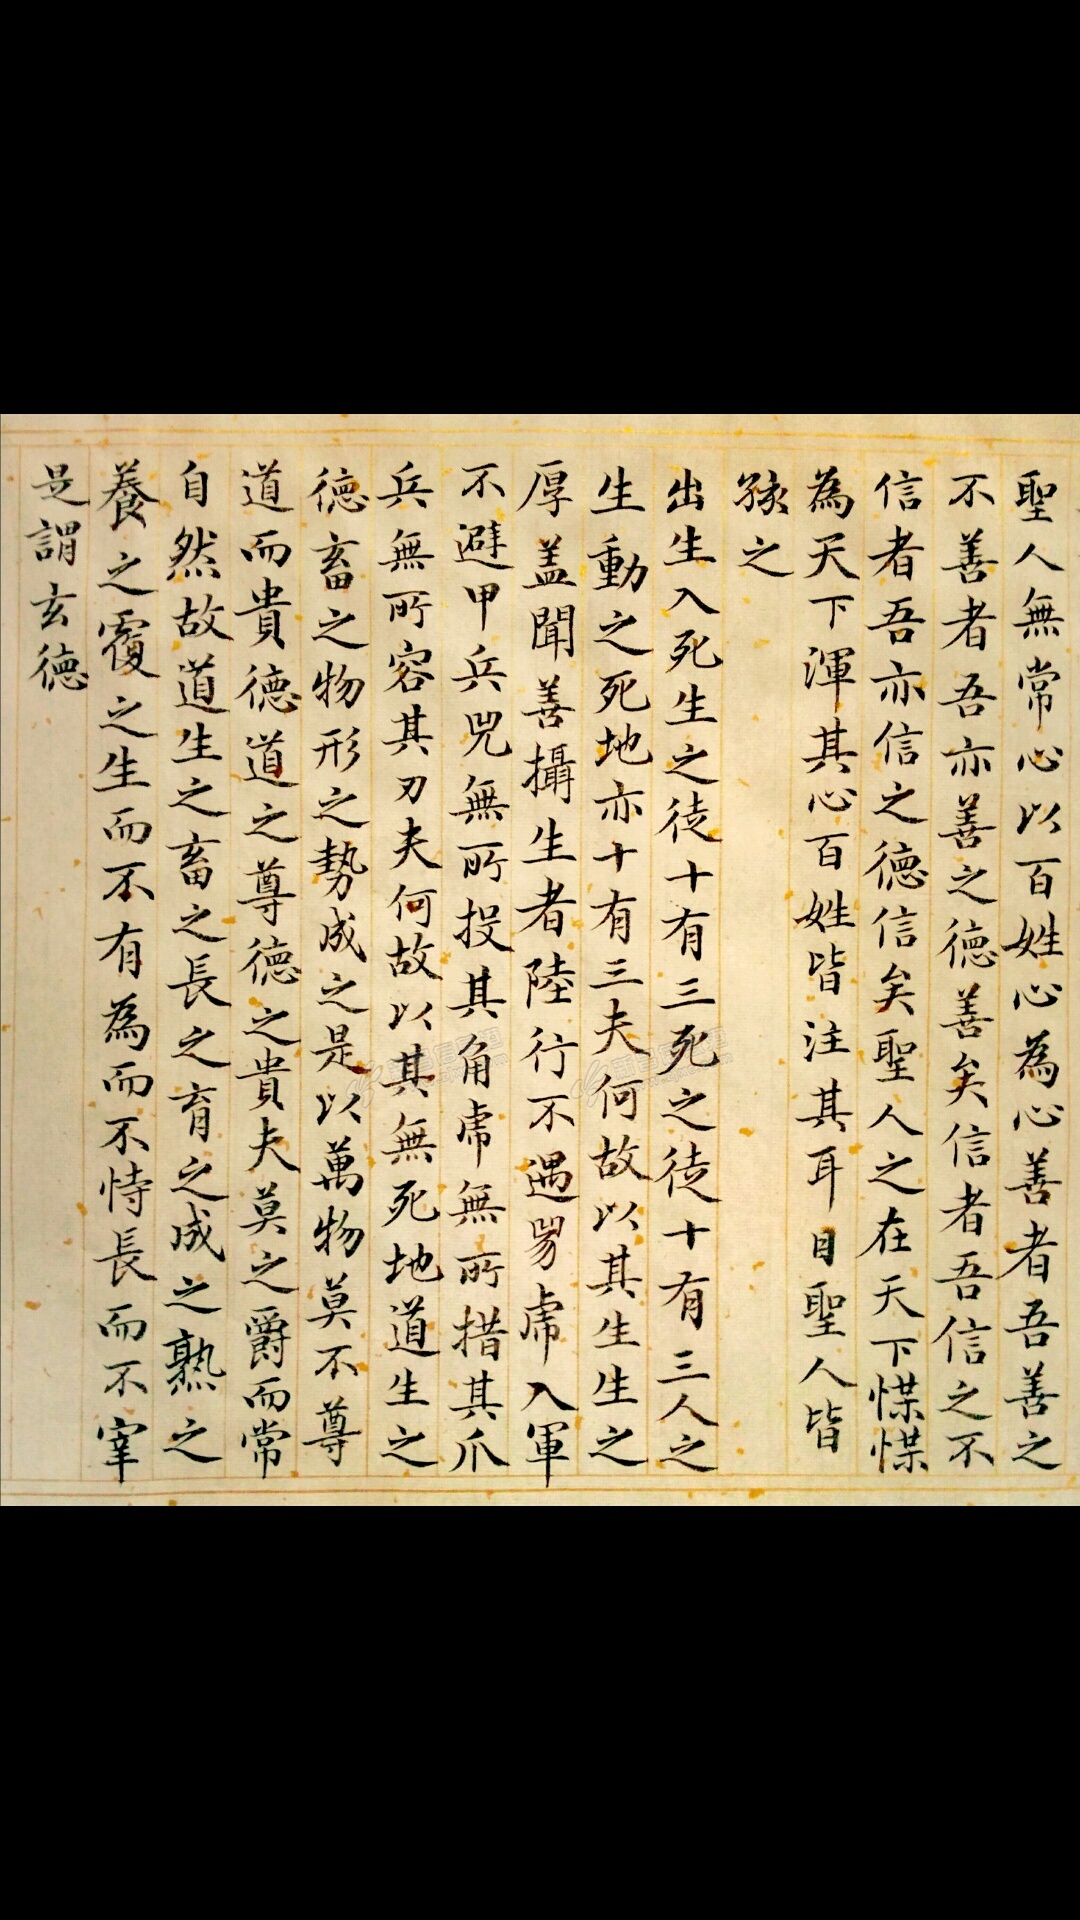 聖人無常心以百姓心為心善者吾善之
不善者吾亦善之德善矣信者吾信之不
信者吾亦信之德信矣聖人之在天下惵惵
為天下渾其心百姓皆注其耳目聖人皆
孩之
出生入死生之徒十有三死之徒十有三人之
生動之死地亦十有三夫何故以其生生之
厚盖聞善攝生者陸行不遇兕虎入軍
不避甲兵兕無所投其角虎無所措其爪
兵無所容其刃夫何故以其無死地道生之
德畜之物形之勢成之是以萬物莫不尊
道而貴德道之尊德之貴夫莫之爵而常
自然故道生之畜之長之育之成之熟之
養之覆之生而不有為而不恃長而不宰
是謂玄德